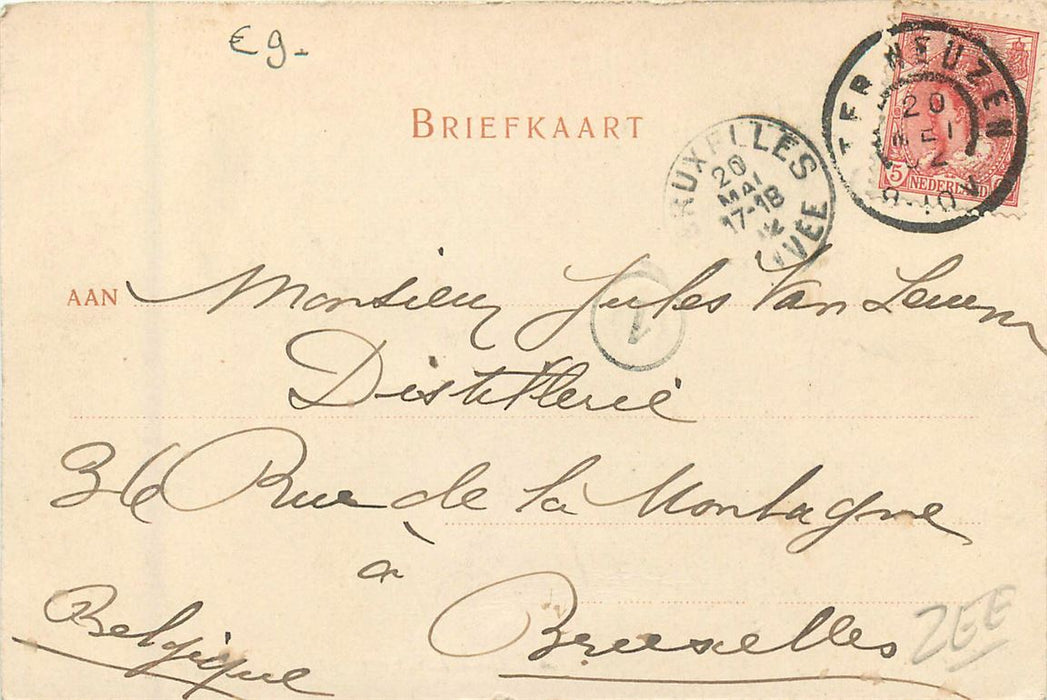 € 9-
BRIEFKAART
TER NEUZEN
20
MEI
02
9-10V
5
NEDERLAND
BRUXELLES
20
MAI
17-18
ARRIVÉE
1
AAN Monsieur Jules Van
Distillerie
36 Rue de la Montagne
à
Bruxelles
Belgique
ZEE